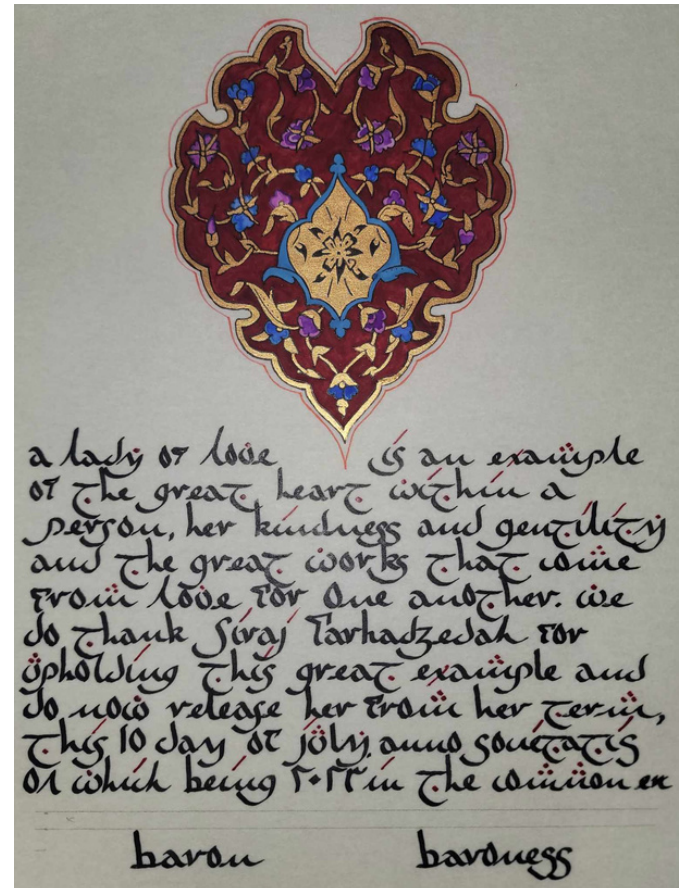 a lady of love is an example
of the great heart within a
person, her kindness and gentility
and the great works that come
from love for one another. we
do thank Siraj Farhadzedah for
upholding this great example and
do now release her from her term,
this 10 day of july, anno societatis
٥٨ which being ٢٠٢٣ in the common era
baron baroness